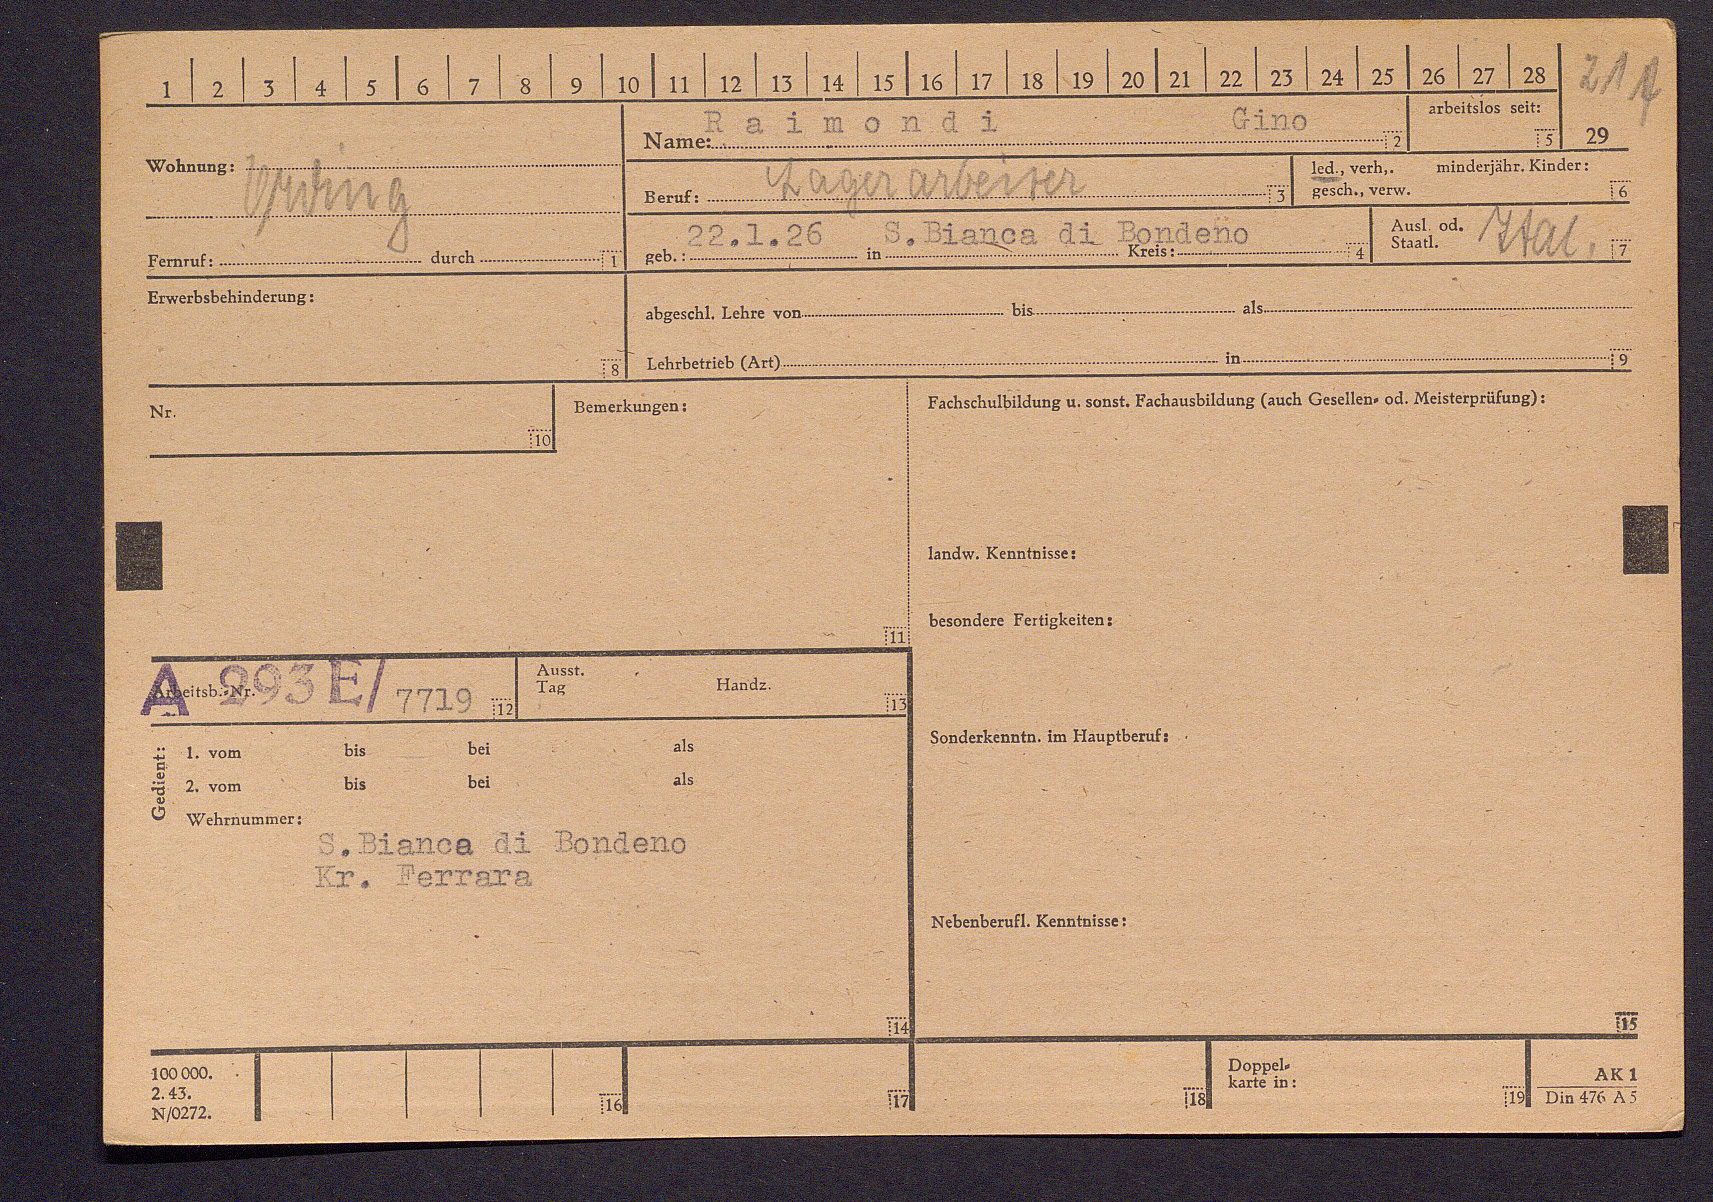 1 2 3 4 5 6 7 8 9 10 11 12 13 14 15 16 17 18 19 20 21 22 23 24 25 26 27 28
Name: Raimondi Gino 2
arbeitslos seit: 5
29
Wohnung:
Beruf: Lagerarbeiter 3
led., verh,. minderjähr. Kinder:
gesch., verw. 6
Fernruf: durch 1
geb.: 22.1.26 in S.Bianca di Bondeno Kreis: 4
Ausl. od.
Staatl. Ital. 7
Erwerbsbehinderung: 8
abgeschl. Lehre von bis als
Lehrbetrieb (Art) in 9
Nr. 10
Bemerkungen: 11
Fachschulbildung u. sonst. Fachausbildung (auch Gesellen- od. Meisterprüfung):
landw. Kenntnisse:
besondere Fertigkeiten:
Arbeitsb.-Nr. A 293E/ 7719 12
Ausst.
Tag Handz. 13
Sonderkenntn. im Hauptberuf:
Gedient:
1. vom bis bei als
2. vom bis bei als
Wehrnummer:
S.Bianca di Bondeno
Kr. Ferrara
14
Nebenberufl. Kenntnisse:
15
100 000.
2. 43.
N/0272.
16 17 18
Doppel-
karte in: 19
AK 1
Din 476 A 5